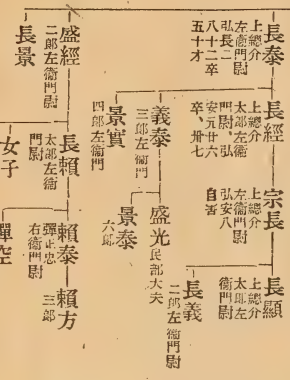 長泰
上總介
左衞門尉
弘長二
八十二卒
五十才
長經
上總介
太郎左衞
門尉、弘
安元廿六
卒、卅七
宗長
上總介
左衞門尉
弘安八
自害
長顯
上總介
太郎左
衞門尉
長義
二郎左衞門尉
義泰
三郎左衞門
盛光
民部大夫
景泰
六郎
景實
四郎左衞門
盛經
二郎左衞門尉
長賴
太郎左衞
門尉
賴泰
彈正忠
右衞門尉
賴方
三郎
長景
女子
禪空